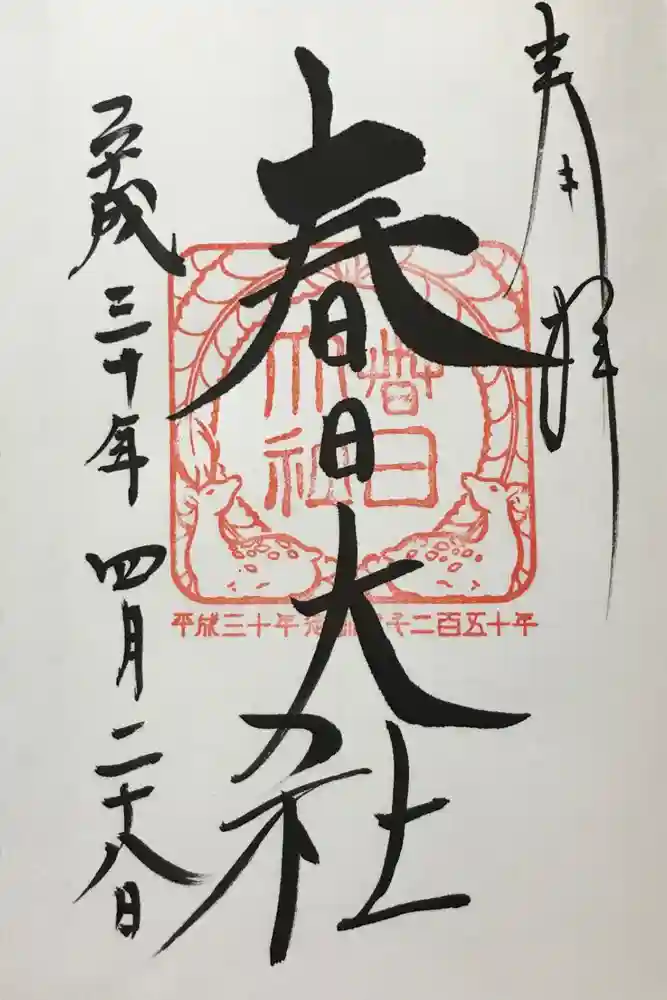 奉拝
春日大社
平成三十年四月二十八日
春日
大社
平成三十年 二百五十年